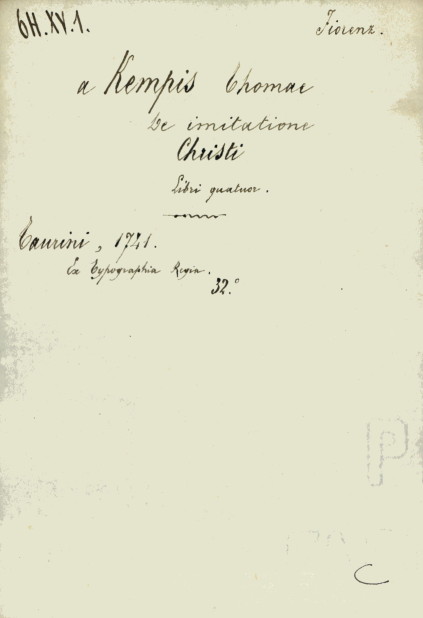 6H.XV.1.
Fiorenz.
a Kempis Thomae
De imitatione
Christi
Libri quatuor.
Taurini, 1721.
Ex Typographia Regia.
32.°
C